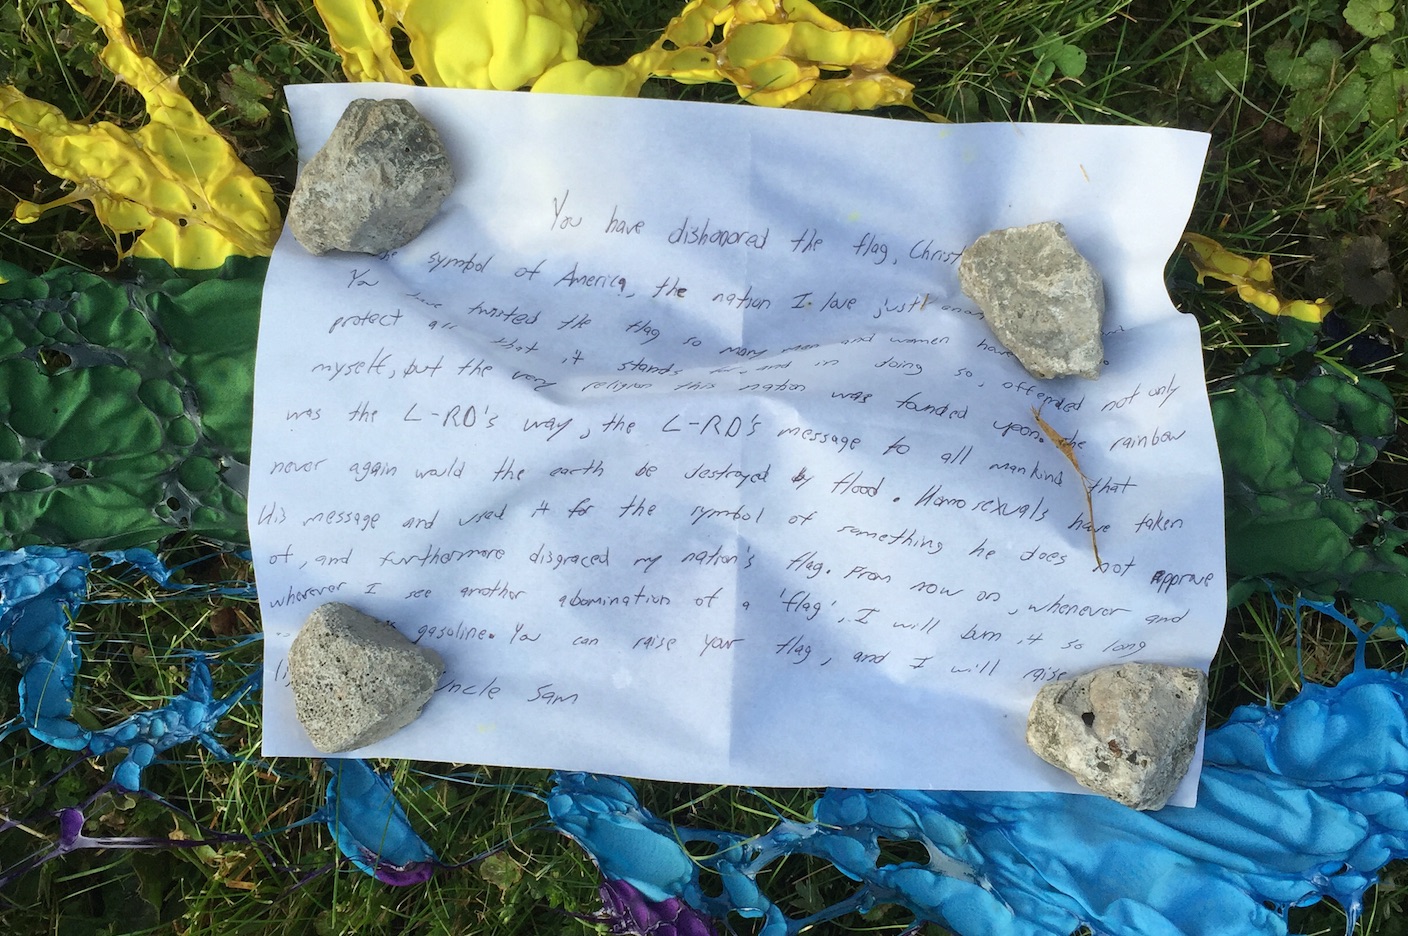 You have dishonored the flag, Christ
symbol of America, the nation I love just
You have twisted the flag so many men and women have
protect all that it stands and in doing so, offended not only
myself, but the very religion this nation was founded upon. The rainbow
was the L-RD's way, the L-RD's message to all mankind that
never again would the earth be destroyed by flood. Homosexuals have taken
His message and used it for the symbol of something he does not approve
of, and furthermore disgraced my nation's flag. From now on, whenever and
wherever I see another abomination of a 'flag', I will burn it so long
gasoline. You can raise your flag, and I will raise
Uncle Sam